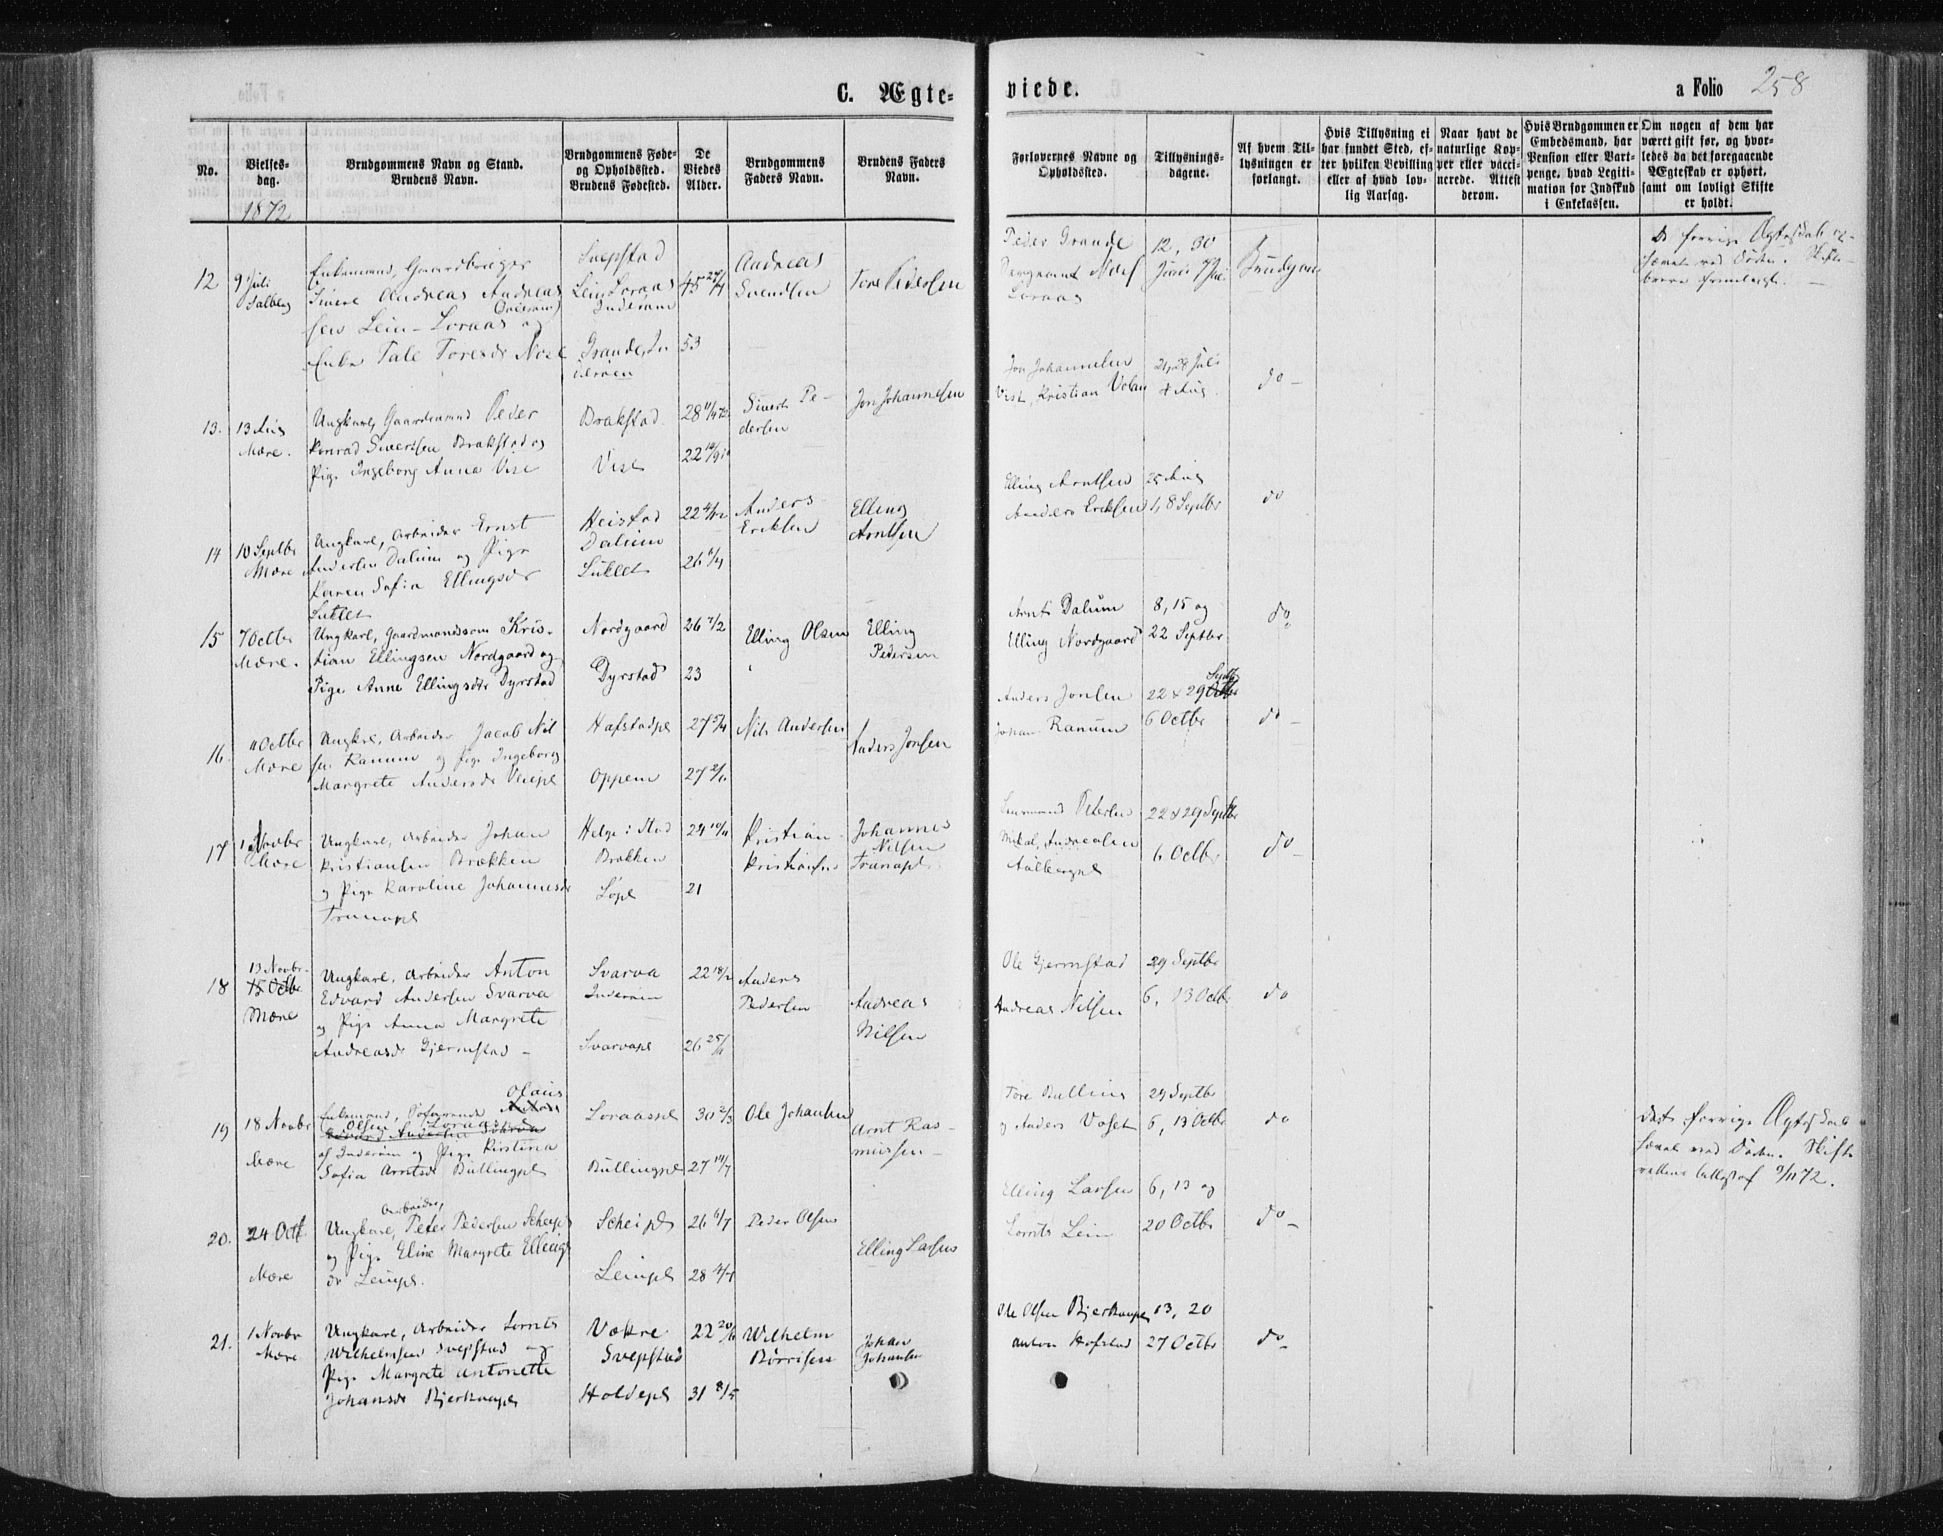 C. Ægte-
viede.
a Folio 258
No.
Vielses-
dag.
1872
Brudgommens Navn og Stand.
Brudens Navn.
Brudgommens Føde-
og Opholdssted.
Brudens Fødested.
De
Viedes
Alder.
Brudgommens
Faders Navn.
Brudens Faders
Navn.
Forlovernes Navne og
Opholdssted.
Tillysnings-
dagene.
Af hvem Til-
lysningen er
forlangt.
Hvis Tillysning ei
har fundet Sted, ef-
ter hvilken Bevilling
eller af hvad lov-
lig Aarsag.
Naar havt de
naturlige Kop-
per eller vacci-
nerede. Attest
derom.
Hvis Brudgommen er
Embedsmand, har
Pension eller Vart-
penge, hvad Legiti-
mation for Indskud
i Enkekassen.
Om nogen af dem har
været gift før, og hvor-
ledes da det foregaaende
Ægteskab er ophørt,
samt om lovligt Skifte
er holdt.
12
9 Juli
Salberg
Enkemand, Gaardbruger
Andreas Andreas
sen Lein-Loraas og
Enke Tale Toresdr
Svepstad
Lein Loraas
Inderøen
Grande, In
derøen
45 27/4
53
Andreas
Svendsen
Tore Pedersen
Peder Grande
Sergeant
Loraas
12, 30
Juni 7 Jul
Brudgom
Det forrige Ægteskab op-
hævet ved Døden. Skifte-
brev fremlagt.
13.
13 Aug
Mære.
Ungkarl, Gaardmand Peder
Konrad Sivertsen Brakstad og
Pige Ingeborg Anna Vist
Brakstad
Vist
28
22
Sivert Pe-
dersen
Jon Johannesen
Jon Johannesen
Vist, Kristian Volan
21, 28 Juli
4 Aug.
do -
14
10 Septbr
Mære
Ungkarl, Arbeider Ernst
Andersen Dalum og Pige
Karen Sofie Ellingsdr
Slettet
Heistad
Dalum
22
26
Anders
Eriksen
Elling
Arntsen
Elling Arntsen
Anders Eriksen
25 Aug
1, 8 Septbr
do
15
7 Octbr
Mære.
Ungkarl, Gaardmandssøn Kris-
tian Ellingsen Nordgaard og
Pige Anne Ellingsdtr Dyrstad
Nordgaard
Dyrstad
26 7/2
23
Elling Olsen
Elling
Pedersen
Arnt Dalum
Elling Nordgaard
8, 15 og
22 Septbr
do
16.
11 Octbr
Mære
Ungkarl, Arbeider Jacob Nil
sen Ranum og Pige Ingeborg
Margrete Andersdr
Hafstadpl
Oppem
27 5/4
27 2/6
Nils Andersen
Anders Jonsen
Anders Jonsen
Johan Ranum
22 & 29 Septbr
6 Octbr
do -
17
1 Novbr
Mære
Ungkarl, Arbeider Johan
Kristiansen Brækken
og Pige Karoline Johannesdr
Tranapl
Helge i Stod
Brækken
21
Kristian
Kristiansen
Johannes
Nilsen
Tranapl
Pedersen
Mikal Andreasen
22 & 29 Septbr
6 Octbr
do -
18
13 Novbr
15 Octbr
Mære
Ungkarl, Arbeider Anton
Edvard Andersen Svarva
og Pige Anna Margrete
Andreasdr Gjermstad -
Svarva
Inderøen
Svarvapl
22 18/2
26
Anders
Pedersen
Andreas
Nilsen
Ole Gjermstad
Andreas Nilsen
29 Septbr
6, 13 Octbr
do
19
18 Novbr
Mære
Enkemand, Olaus
Olsen Loraas
af Inderøen og Pige Kirstina
Sofia Arntsdr Bullingpl
Loraaspl
Bullingpl
30 2/3
27 14/7
Ole Johansen
Arnt Ras-
mussen -
Tore Bulling
og Anders Voset
29 Septbr
6, 13 Octbr
do
Dets forrige Ægteskab
hævet ved Døden. Skifte
rettens 9/11 72.
20.
24 Oct
Mære
Arbeider,
Ungkarl, Peter Pedersen Scheipl
og Pige Eline Margrete Ellings
dr Leinpl.
Scheipl
Leinpl
26 6/7
28
Peder Olsen
Elling Larsen
Elling Larsen
Lornts Lein
6, 13 og
20 Octbr
do -
21.
1 Novbr
Mære
Ungkarl, Arbeider Lornts
Wilhelmsen Svepstad og
Pige Margrete Antonette
Johansdr
Vækre
Svepstad
Holdepl
22
31 8/5
Wilhelm
Børresen
Johan
Johansen
Ole Olsen
Anton Hofstad
13, 20
27 Octbr
do -